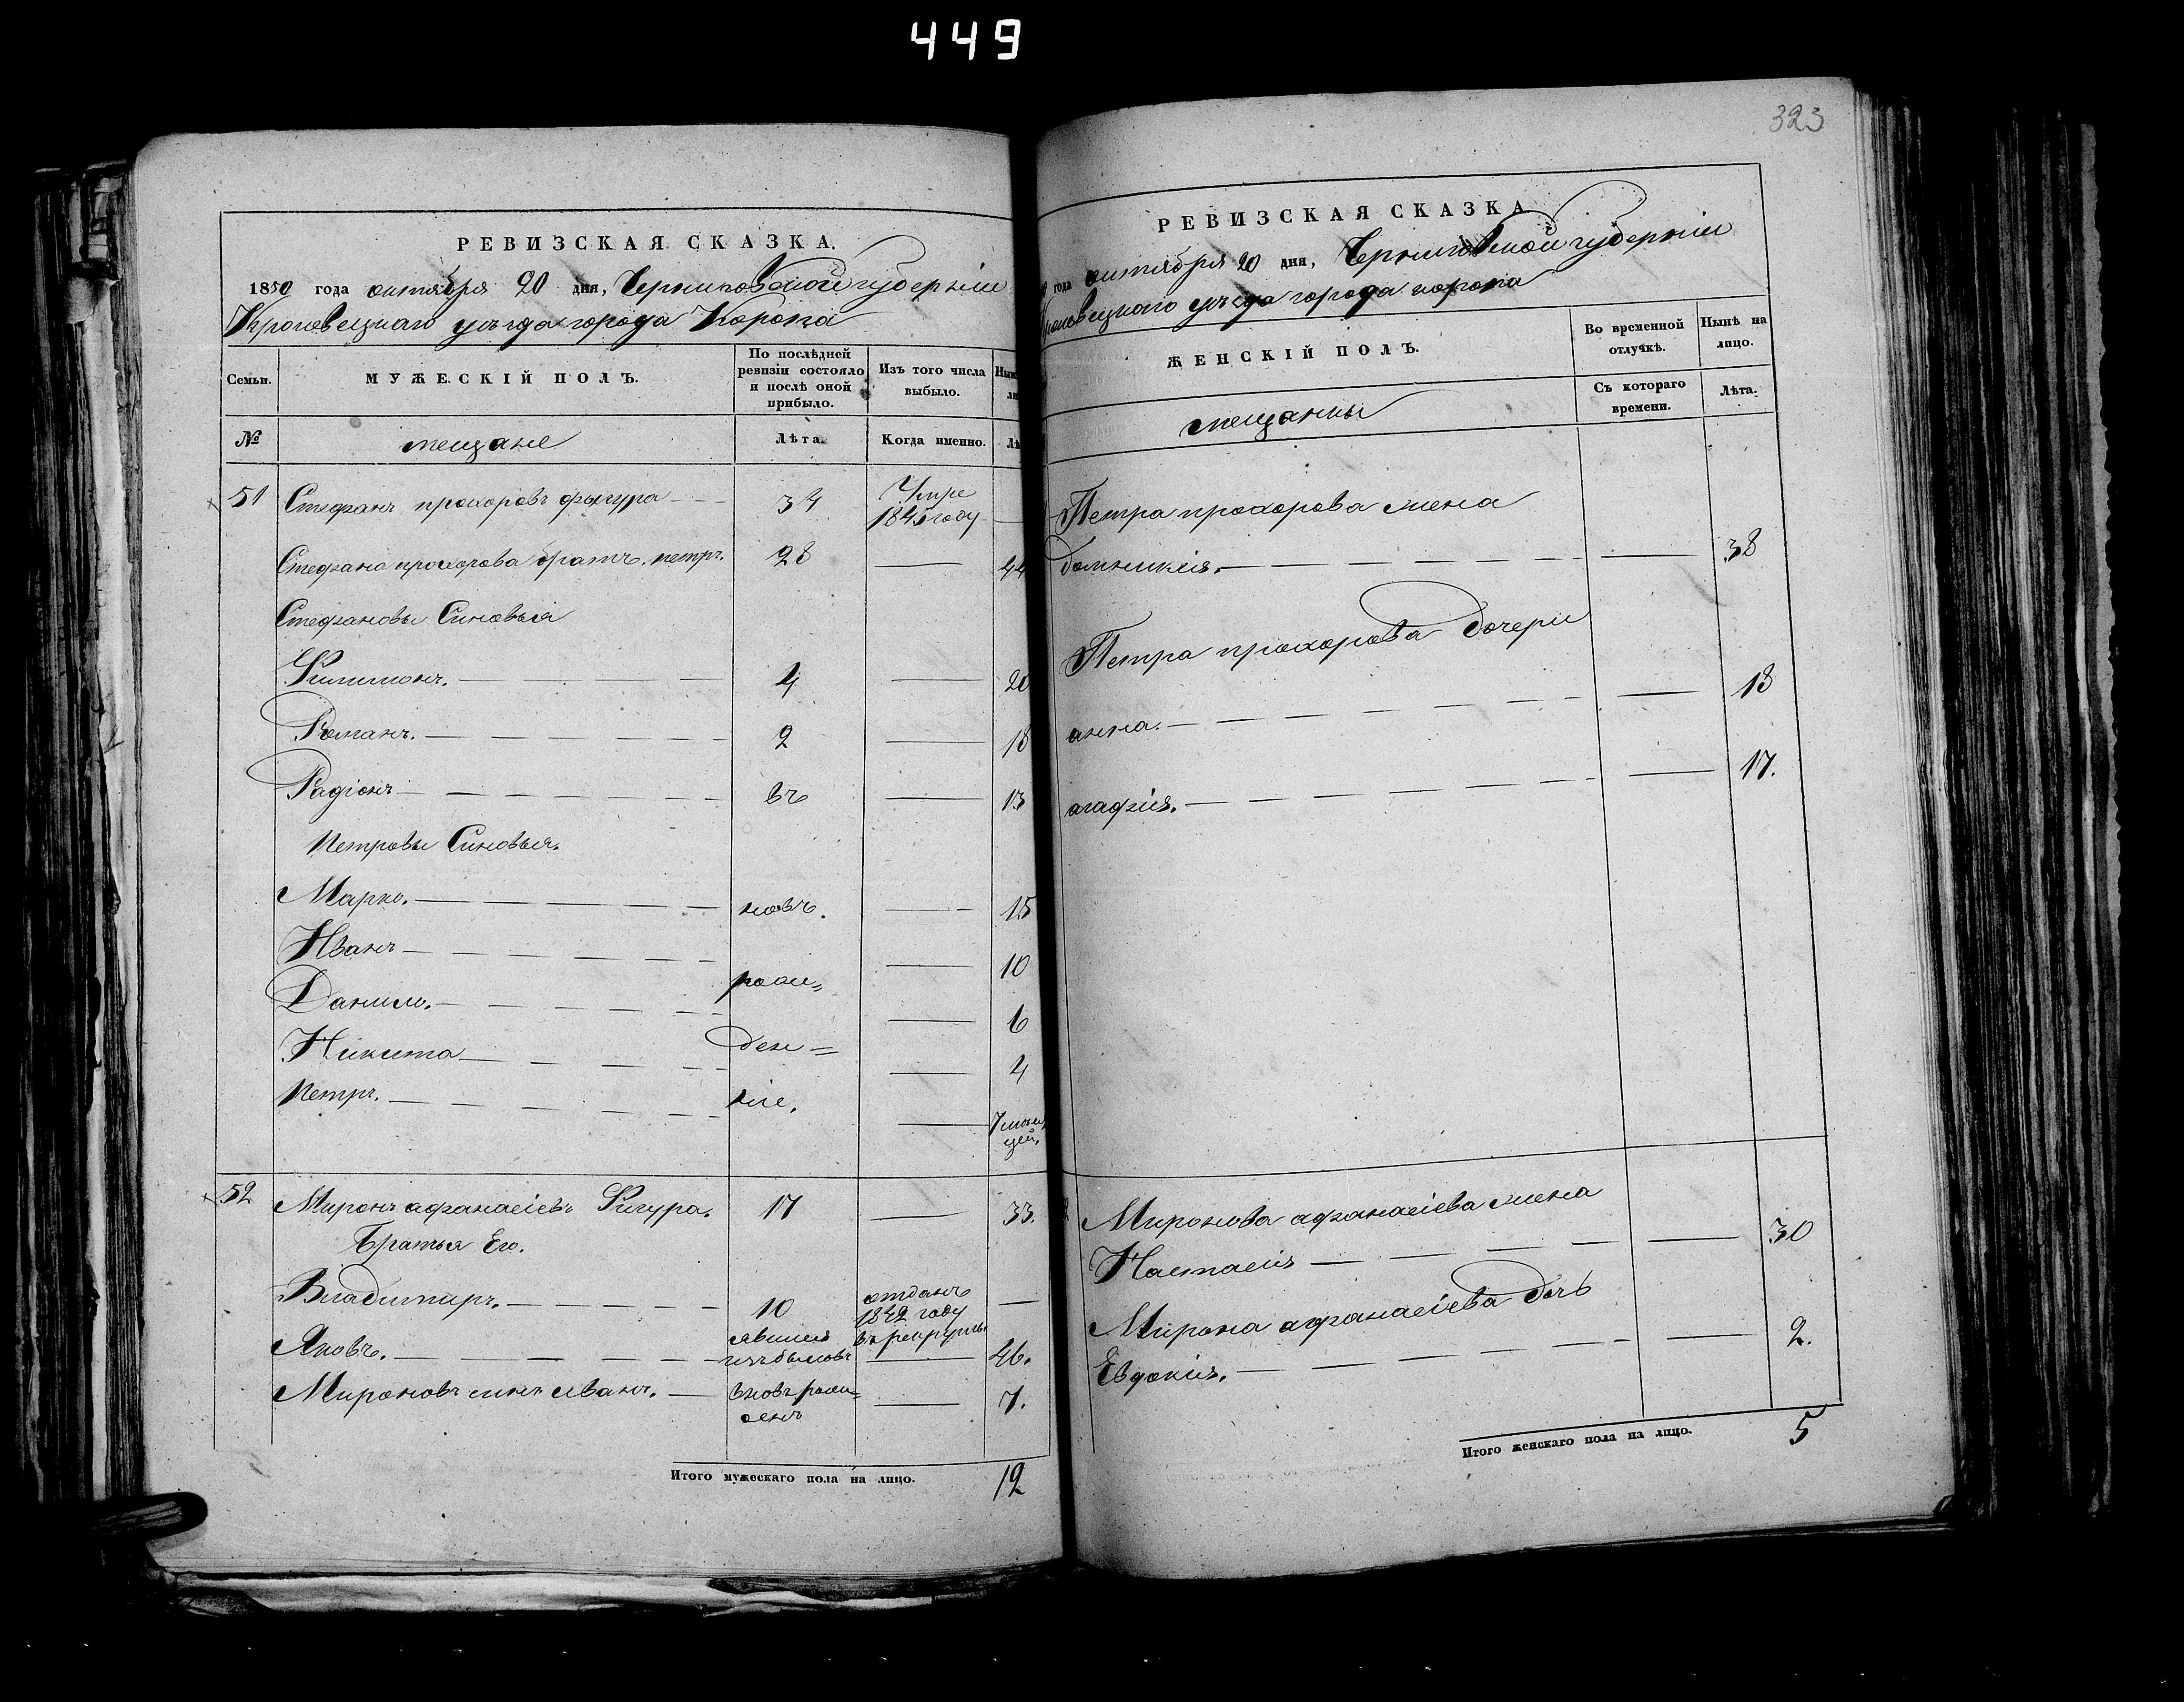 449
РЕВИЗСКАЯ СКАЗКА.
1850 года октября 20 дня, Черниговской губерніи
Кролевецкаго уѣзда города Коропа
Семьи.
МУЖЕСКІЙ ПОЛЪ.
По послѣдней
ревизіи состояло
и послѣ оной
прибыло.
Изъ того числа
выбыло.
№
мещане
Лѣта.
Когда именно.
51 Стефанъ прохоровъ фыгура 34 Умре
1845 году
Стефана прохорова братъ. петръ. 28 44
Стефановы Синовья
Филимонъ. 4 20
Романъ. 2 18
Радіонъ въ 13
Петровы Синовья.
Марко. новъ. 15
Иванъ 10
рож=
Данило. 6
Никита ден= 4
Петръ. ніе. 7 меся
цей.
52 Миронъ афанасіевъ Фигура. 17 33.
Братья Его.
Владимиръ. 10 отданъ
1842 году
в рекруты.
Яковъ. явился
изъ бѣговъ 46.
Мироновъ синъ иванъ. вновь рож=
денъ 7.
Итого мужескаго пола на лицо. 12
323
РЕВИЗСКАЯ СКАЗКА
года октября 20 дня, Черниговской губерніи
кролевецкаго уѣзда города коропа
ЖЕНСКІЙ ПОЛЪ.
Во временной
отлучкѣ.
Нынѣ на
лицо.
мещанки
Съ котораго
времени.
Лѣта.
Петра прохорова жена
домникия. 38
Петра прохорова дочери
анна. 18
агафия. 17.
Миронова афанасіева жена
Настасия 30
Мирона афанасіева дочь
Евдокия. 2.
Итого женскаго пола на лицо. 5